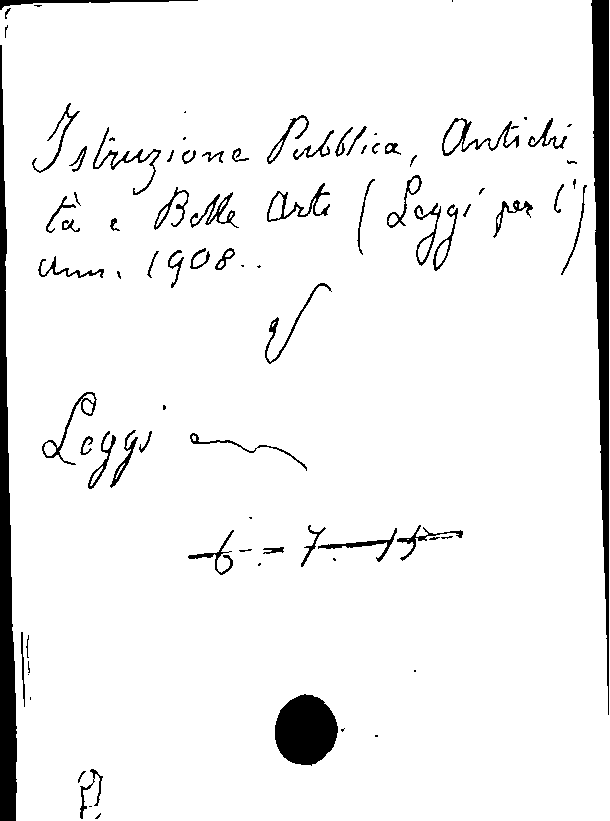 Istruzione Pubblica, Antichi-
tà e Belle Arti (Leggi per l')
Ann. 1908..
Leggi
6.- 7. 15